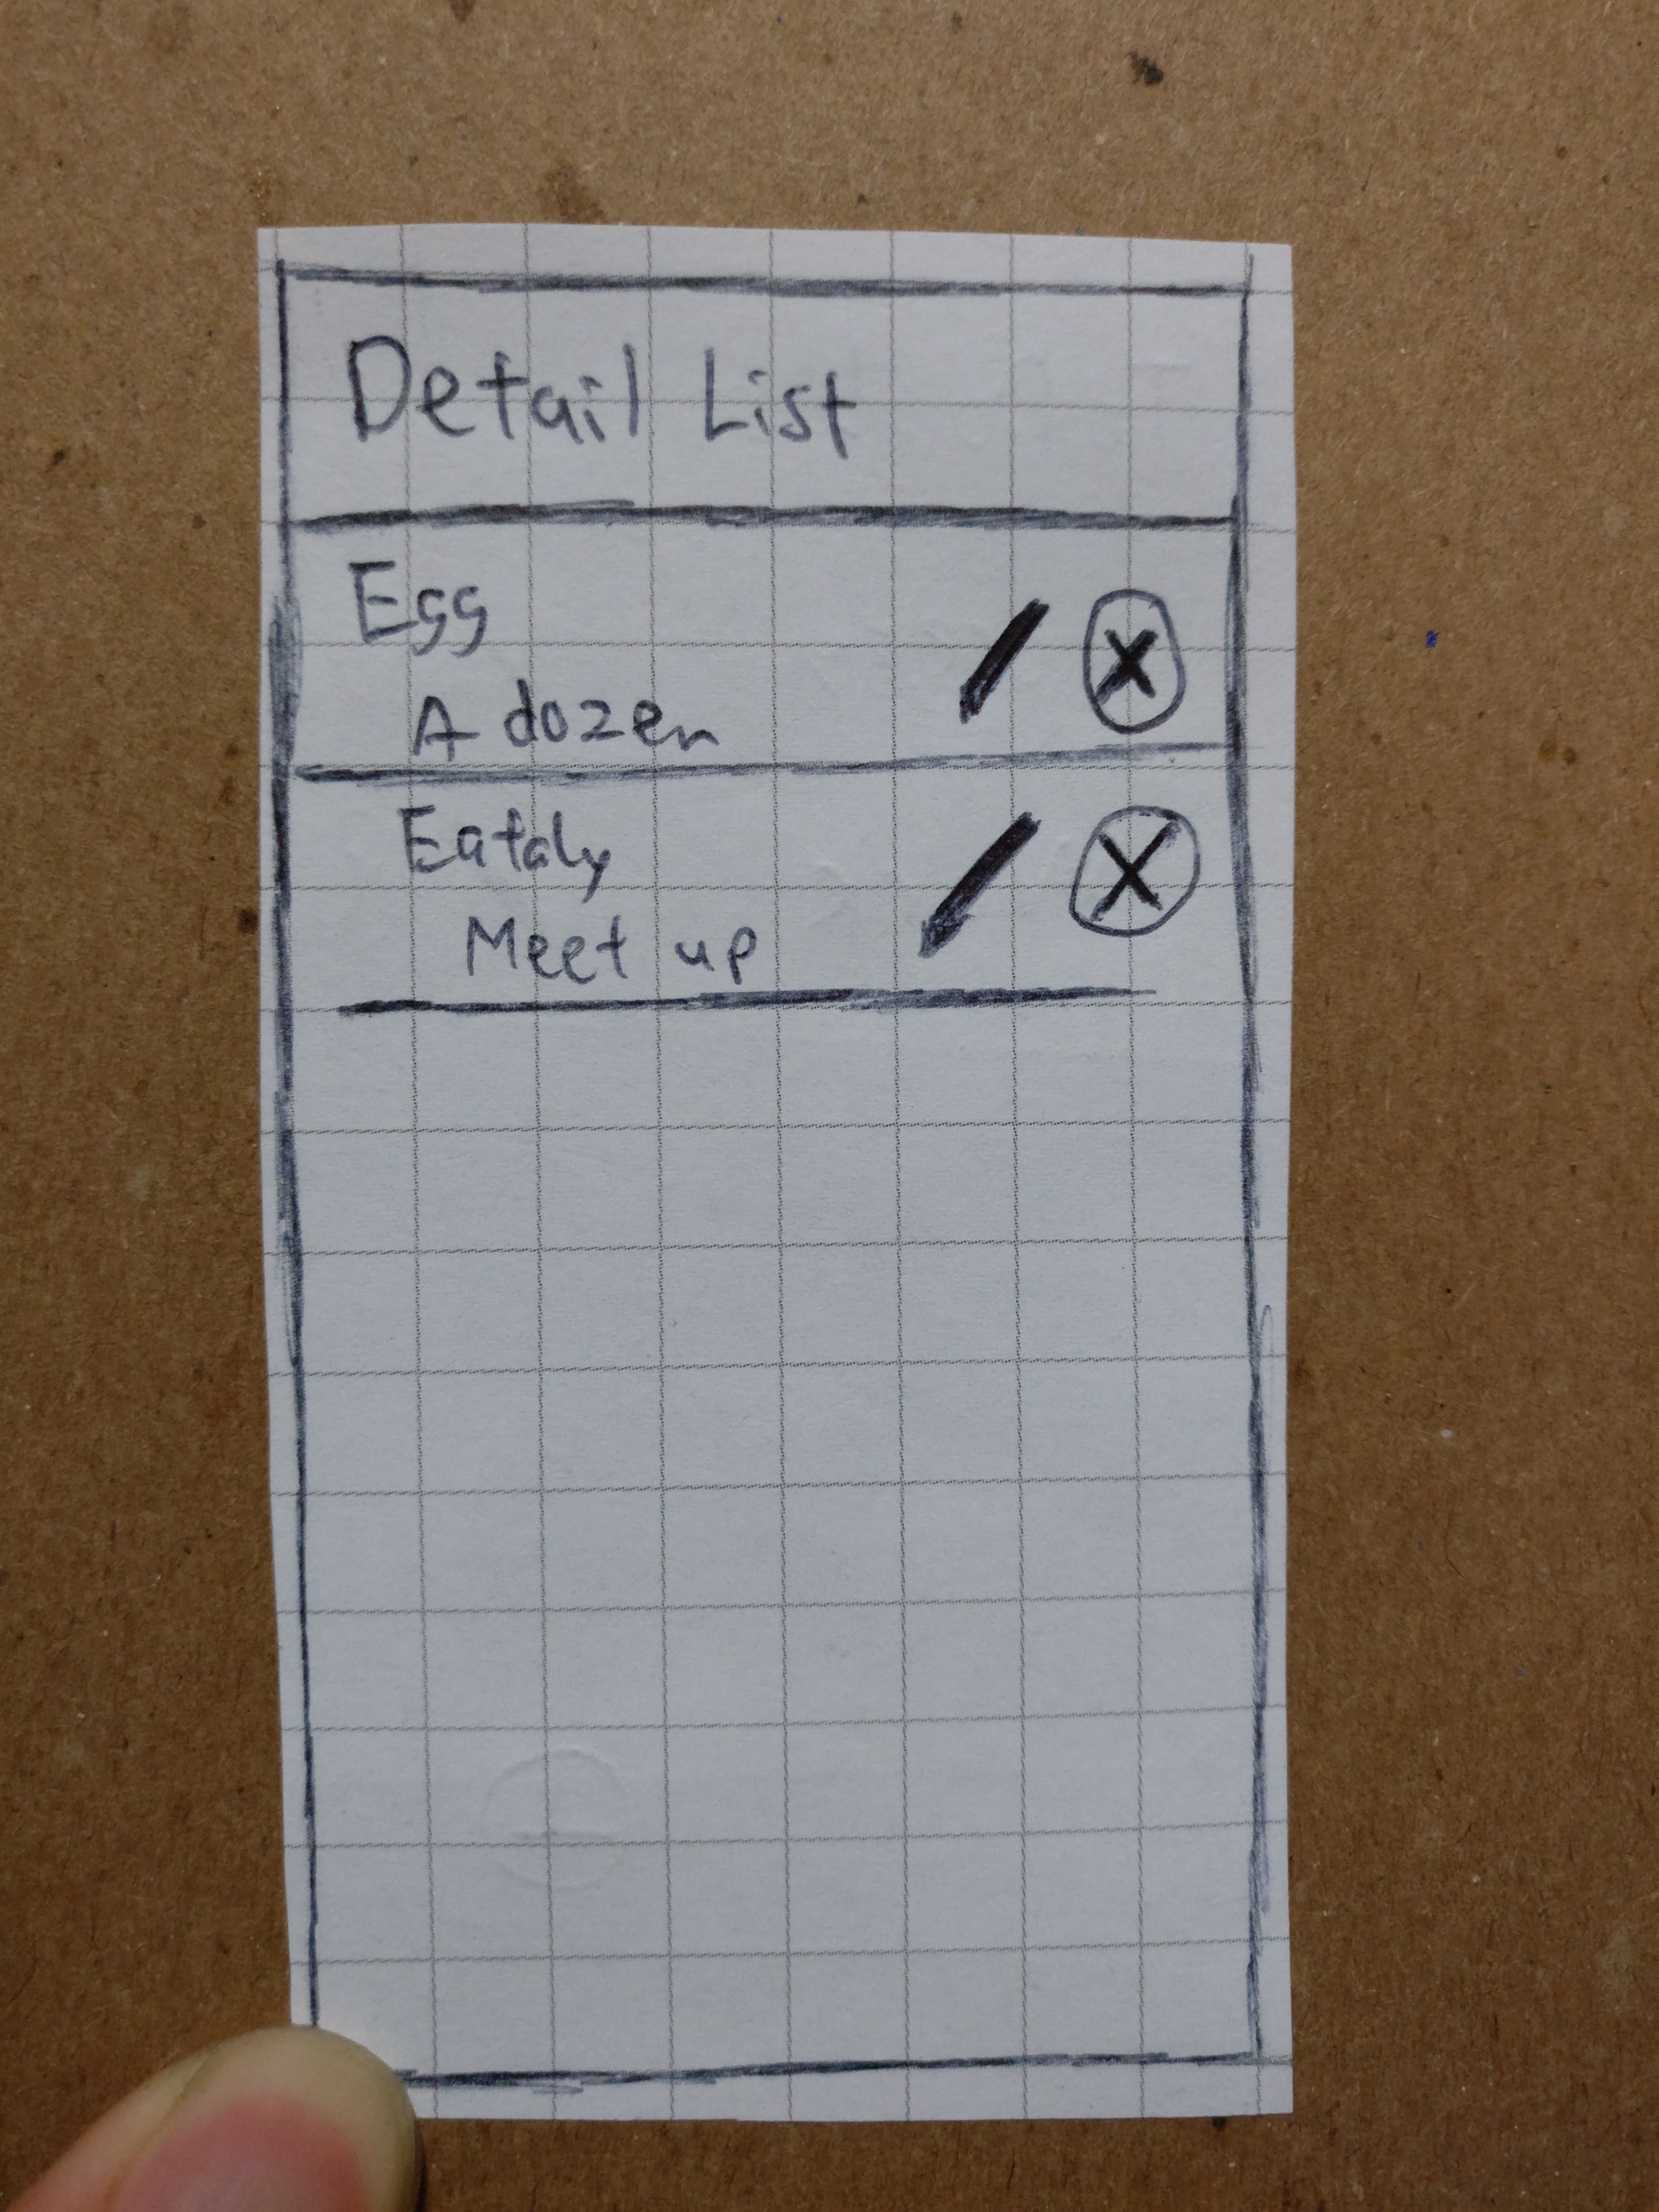 Detail List
Egg
A dozen
Eataly
Meet up